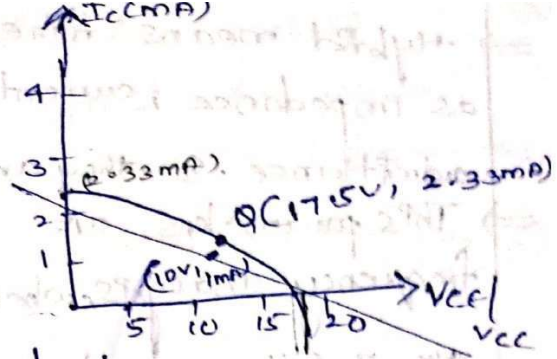 Ic(mA)
4
3
(2.33mA).
2
Q(17.5V, 2.33mA)
1
(10V, 1mA)
5 10 15 20
VCE/
VCC